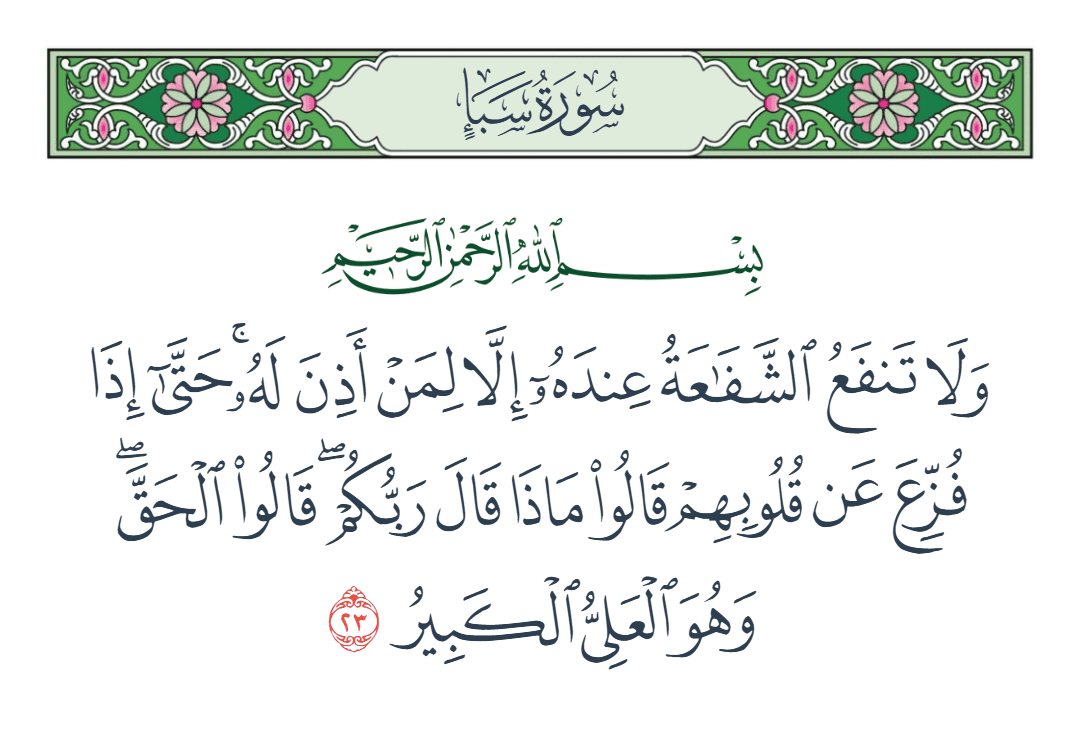 سُورَةُ سَبَإٍ
بِسْمِ ٱللَّهِ ٱلرَّحْمَٰنِ ٱلرَّحِيمِ
وَلَا تَنفَعُ ٱلشَّفَٰعَةُ عِندَهُۥٓ إِلَّا لِمَنْ أَذِنَ لَهُۥۚ حَتَّىٰٓ إِذَا
فُزِّعَ عَن قُلُوبِهِمْ قَالُوا۟ مَاذَا قَالَ رَبُّكُمْۖ قَالُوا۟ ٱلْحَقَّۖ
وَهُوَ ٱلْعَلِىُّ ٱلْكَبِيرُ ٢٣